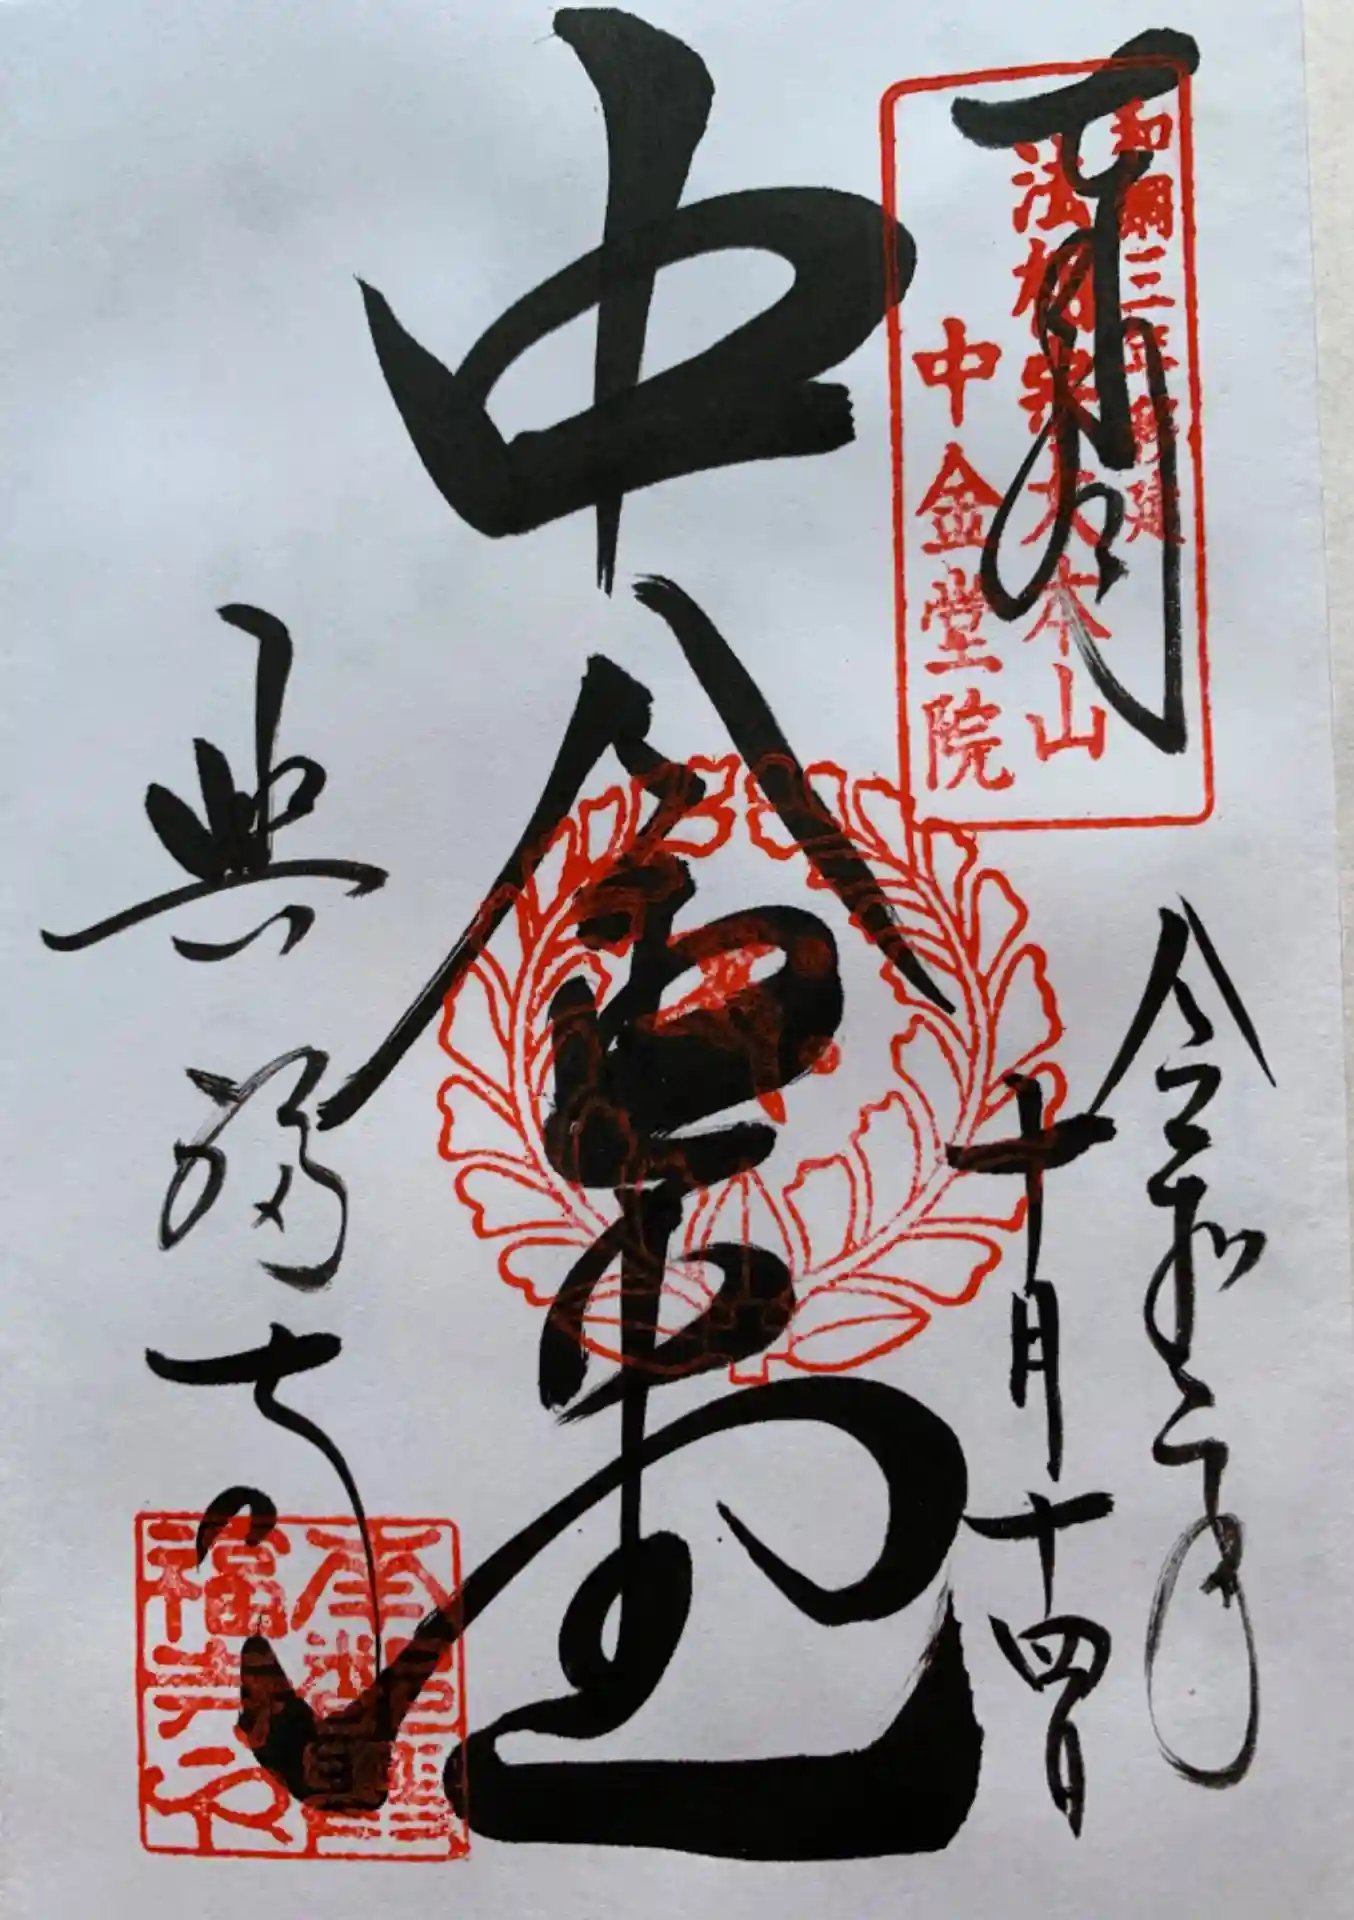 奉拝
和銅三年創建
法相宗大本山
中金堂院
令和二年
十月十四日
中金堂
興福寺